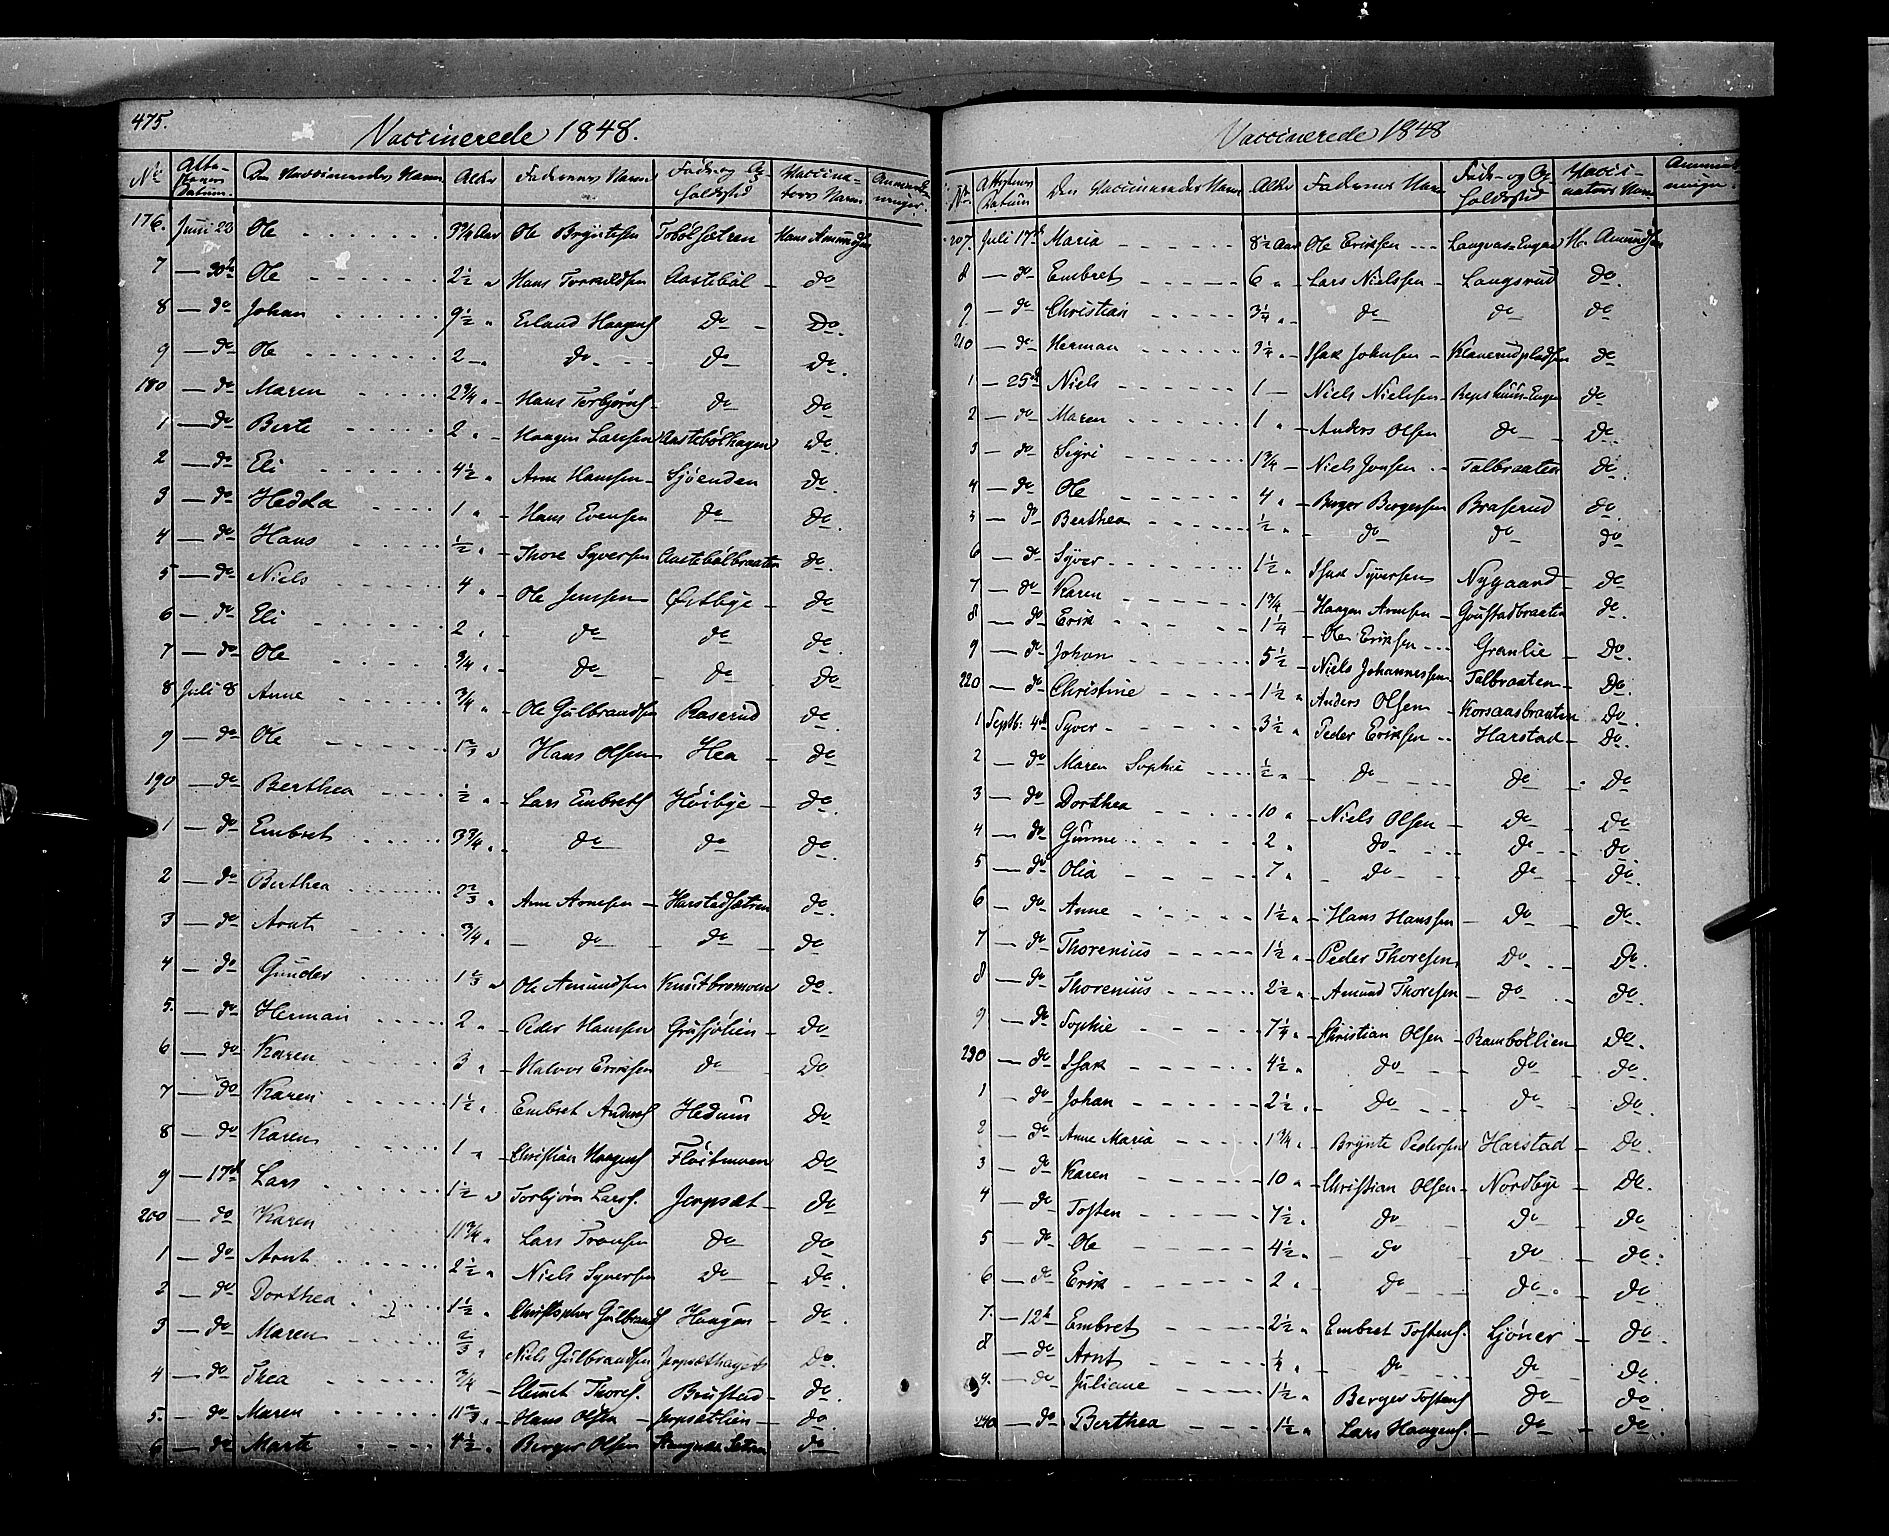 475.
Vaccinerede 1848.
No | Attestens Datum | Den Vaccineredes Navn | Alder | Faderens Navn | Føde- og Opholdssted | Vaccinateurs Navn | Anmærkninger
176. Juni 23 Ole 3 3/4 Aar Ole Bryntesen Tobølsætren Hans Amundsen
7 — 30te Ole 2 1/2 " Hans Torkildsen Aastebøl do
8 — do Johan 9 1/2 " Erland Haagens. do do
9 — do Ole 2 " do do do
180 — do Maren 2 3/4 " Hans Torbjørns. do do
1 — do Berte 2 " Haagen Larssen Aastebølhagen do
2 — do Eli 4 1/2 " Arne Hanssen Sjøenden do
3 — do Hedda 1 " Hans Evensen do do
4 — do Hans 1/2 " Thore Syversen Aastebølbraaten do
5 — do Niels 4 " Ole Jenssen Østbye do
6 — do Eli 2 " do do do
7 — do Ole 3/4 " do do do
8 Juli 8 Anne 3/4 " Ole Gulbrandsen Raserud do
9 — do Ole 1 2/3 " Hans Olsen Hea do
190 — do Berthea 1/2 " Lars Embrets. Høibye do
1 — do Embret 3 3/4 " do do do
2 — do Berthea 2 2/3 " Arne Arnesen Harstadsætren do
3 — do Arnt 3/4 " do do do
4 — do Gunder 1 2/3 " Ole Amundsen Knutbromoen do
5. — do Herman 2 " Peder Hanssen Grasjølien do
6 — do Karen 3 " Halvor Eriksen do do
7 — do Karen 1 1/2 " Embret Anders. Hedum do
8 — do Karen 1 " Christian Haagens. Fløitmoen do
9 — 17de Lars 1 1/2 " Torbjørn Larss. Jerpsæt do
200 — do Karen 11 3/4 " Lars Tronsen do do
1 — do Arnt 2 1/2 " Niels Syversen do do
2 — do Dorthea 1 1/2 " Christopher Gulbrands. Haugen do
3 — do Maren 2/3 " Niels Gulbrandsen Jerpsæthagen do
4 — do Thea 3/4 Clemet Thores. Brustad do
5. — do Maren 11 2/3 " Hans Olsen Jerpsætlien do
6 — do Marte 4 1/2 " Berger Olsen do
Vaccinerede 1848
No | Attestens Datum | Den Vaccineredes Navn | Alder | Faderens Navn | Føde- og Opholdssted | Vaccinateurs Navn | Anmærkninger
207. Juli 17de Maria 8 1/2 Aar Ole Eriksen H. Amundsen
8 — do Embret 6 " Lars Nielssen Langsrud do
9 — do Christian 3 1/4 " do do do
210 — do Herman 3 1/4 " Isak Johnsen Klanerudpladsen do
1 — 25de Niels 1 — Niels Nielssen do
2 — do Maren 1 " Anders Olsen do do
3 — do Sigri 1 3/4 — Niels Jonssen Talbraaten do
4 — do Ole 4 " Berger Bergersen Braserud do
5 — do Berthea 1/2 " do do do
6 — do Syver 1 1/2 " Isak Syversen Nygaard do
7 — do Karen 1 3/4 — Haagen Arnesen Goustadbraaten do
8 — do Erik 1 1/4 — Ole Eriksen Granlie do
9 — do Johan 5 1/2 — Niels Johannessen Talbraaten do
220 — do Christine 1 1/2 " Anders Olsen Korsaasbraaten do
1 Septb. 4de Syver 3 1/2 " Peder Eriksen Harstad do
2 — do Maren Sophie 1/2 " do do do
3 — do Dorthea 10 " Niels Olsen do do
4 — do Gunne 2 " do do do
5 — do Olia 7 " do do do
6 — do Anne 1 1/2 " Hans Hanssen do do
7 — do Thorenius 1 1/2 " Peder Thoresen do do
8 — do Thorenius 2 1/2 " Amund Thoresen do do
9 — do Sophie 7 1/4 " Christian Olsen Rambøllien do
230 — do Isak 4 1/2 " do do do
1 — do Johan 2 1/2 " do do do
2 — do Anne Maria 1 3/4 " Brynte Pedersen Harstad do
3 — do Karen 10 " Christian Olsen Nordbye do
4 — do Tosten 7 1/2 " do do do
5 — do Ole 4 1/2 " do do do
6 — do Erik 2 " do do do
7. — 12te Embret 2 1/2 " Embret Tostens. Ljøner do
8 — do Arnt 1/4 " do do do
9. — do Juliane 1 1/2 " Berger Tostens. do do
240 — do Berthea 1 1/2 " Lars Haagens. do do